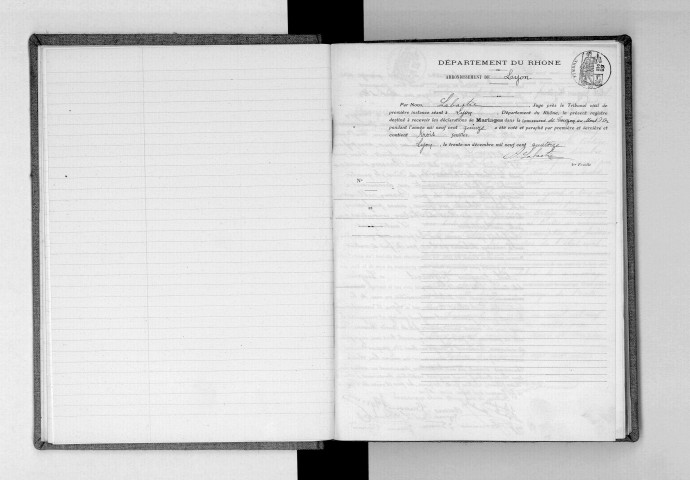 DÉPARTEMENT DU RHONE
ARRONDISSEMENT DE Lyon
Par Nous, Juge près le Tribunal civil de
première instance séant à Lyon, Département du Rhône, le présent registre
destiné à recevoir les déclarations de Mariages dans la commune de au Mont d'Or
pendant l'année mil neuf cent quinze a été coté et paraphé par première et dernière et
contient trois
Lyon, le trente-un décembre mil neuf cent quatorze
1er Feuille
N°
et